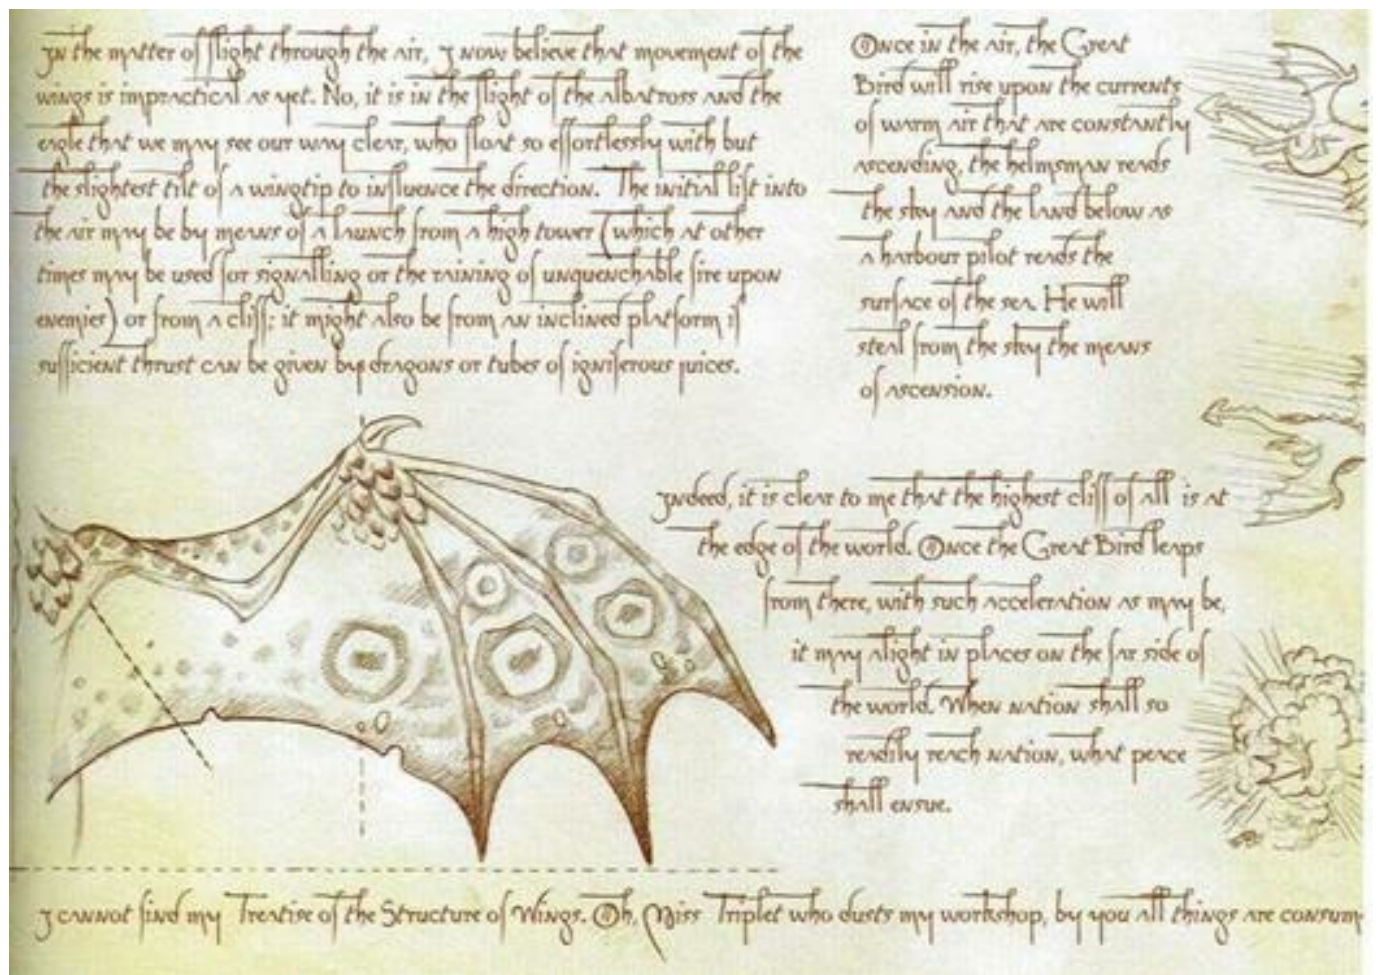 In the matter of flight through the air, I now believe that movement of the
wings is impractical as yet. No, it is in the flight of the albatross and the
eagle that we may see our way clear, who float so effortlessly with but
the slightest tilt of a wingtip to influence the direction. The initial lift into
the air may be by means of a launch from a high tower (which at other
times may be used for signalling or the raining of unquenchable fire upon
enemies) or from a cliff; it might also be from an inclined platform if
sufficient thrust can be given by dragons or tubes of igniferous juices.
Once in the air, the Great
Bird will rise upon the currents
of warm air that are constantly
ascending, the helmsman reads
the sky and the land below as
a harbour pilot reads the
surface of the sea. He will
steal from the sky the means
of ascension.
Indeed, it is clear to me that the highest cliff of all is at
the edge of the world. Once the Great Bird leaps
from there, with such acceleration as may be,
it may alight in places on the far side of
the world. When nation shall so
readily reach nation, what peace
shall ensue.
I cannot find my Treatise of the Structure of Wings. Oh, Miss Triplet who dusts my workshop, by you all things are consum